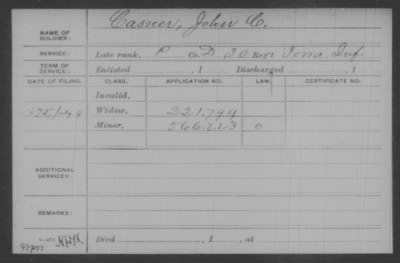 NAME OF SOLDIER: Casner, John C.
SERVICE: Late rank, P Co. D 30 Reg't Iowa Inf.
TERM OF SERVICE: Enlisted , 1 Discharged , 1
DATE OF FILING. CLASS. APPLICATION NO. LAW. CERTIFICATE NO.
Invalid,
Widow, 221,799
Minor, 566223 0
ADDITIONAL SERVICES:
REMARKS:
Died , 1 , at